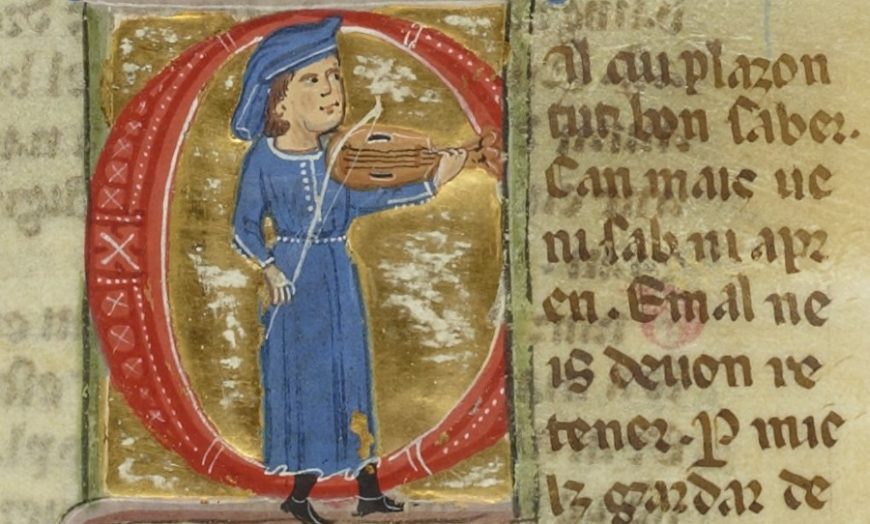 CIl cui plazon
tuit bon saber.
Can mais ue
ni sab ni apr
en. E mal ne
is deuon re
tener. P mie
lz gardar de